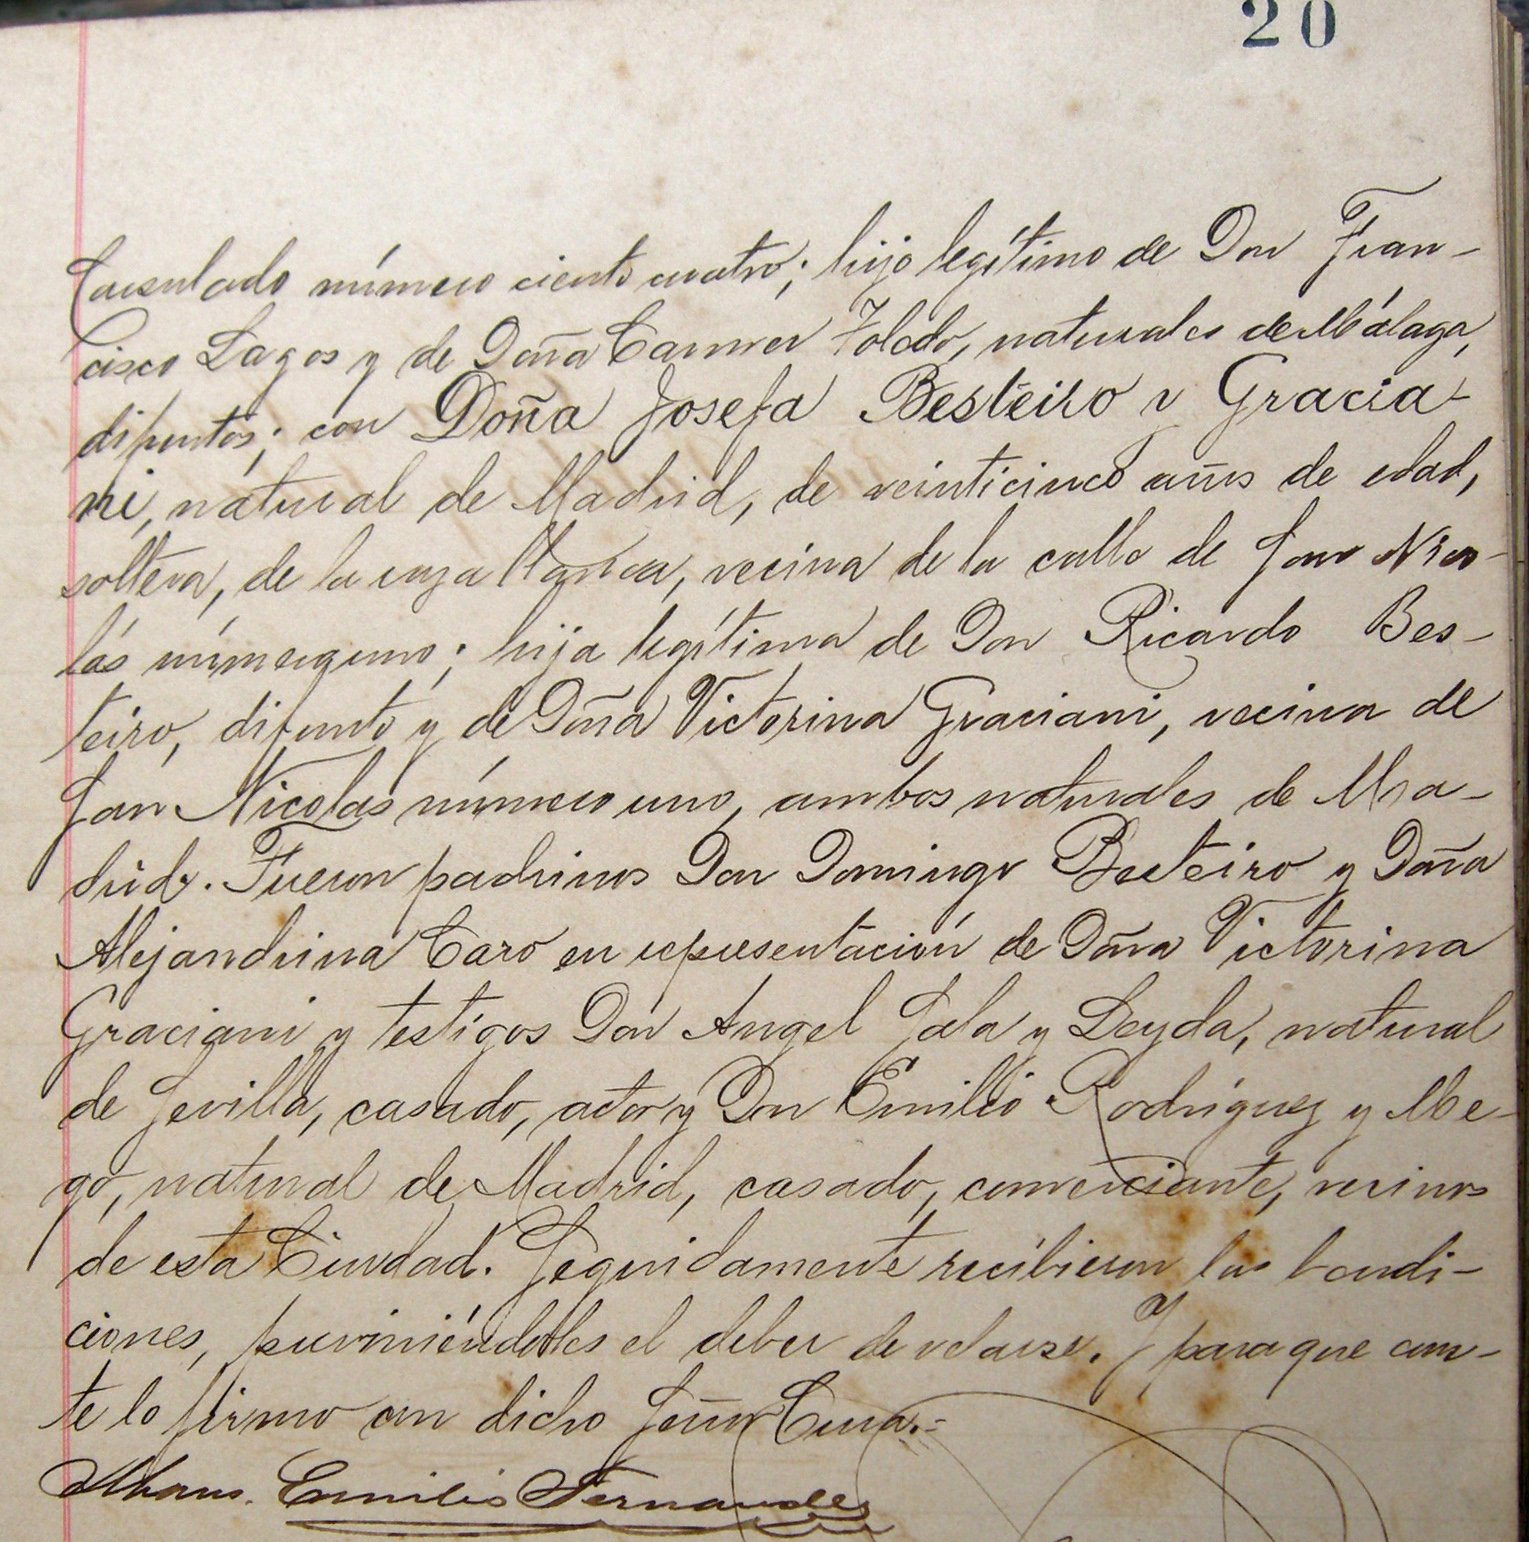 20
Consulado número ciento cuatro; hijo legítimo de Don Fran-
cisco Lagos y de Doña Carmen Toledo, naturales de Málaga,
difuntos; con Doña Josefa Besteiro y Gracia-
ni, natural de Madrid, de veinticinco años de edad,
soltera, de la raza blanca, vecina de la calle de San Nico-
lás número uno; hija legítima de Don Ricardo Bes-
teiro, difunto y de Doña Victorina Graciani, vecina de
San Nicolas número uno, ambos naturales de Ma-
drid. Fueron padrinos Don Domingo Besteiro y Doña
Alejandrina Caro en representación de Doña Victorina
Graciani y testigos Don Angel Sala y Leyda, natural
de Sevilla, casado, actor y Don Emilio Rodríguez y Me-
go, natural de Madrid, casado, comerciante, vecinos
de esta Ciudad. Seguidamente recibieron las bendi-
ciones, previniéndoles el deber de velarse. Y para que cons-
te lo firmo con dicho Señor Cura.=
Emilio Fernandez